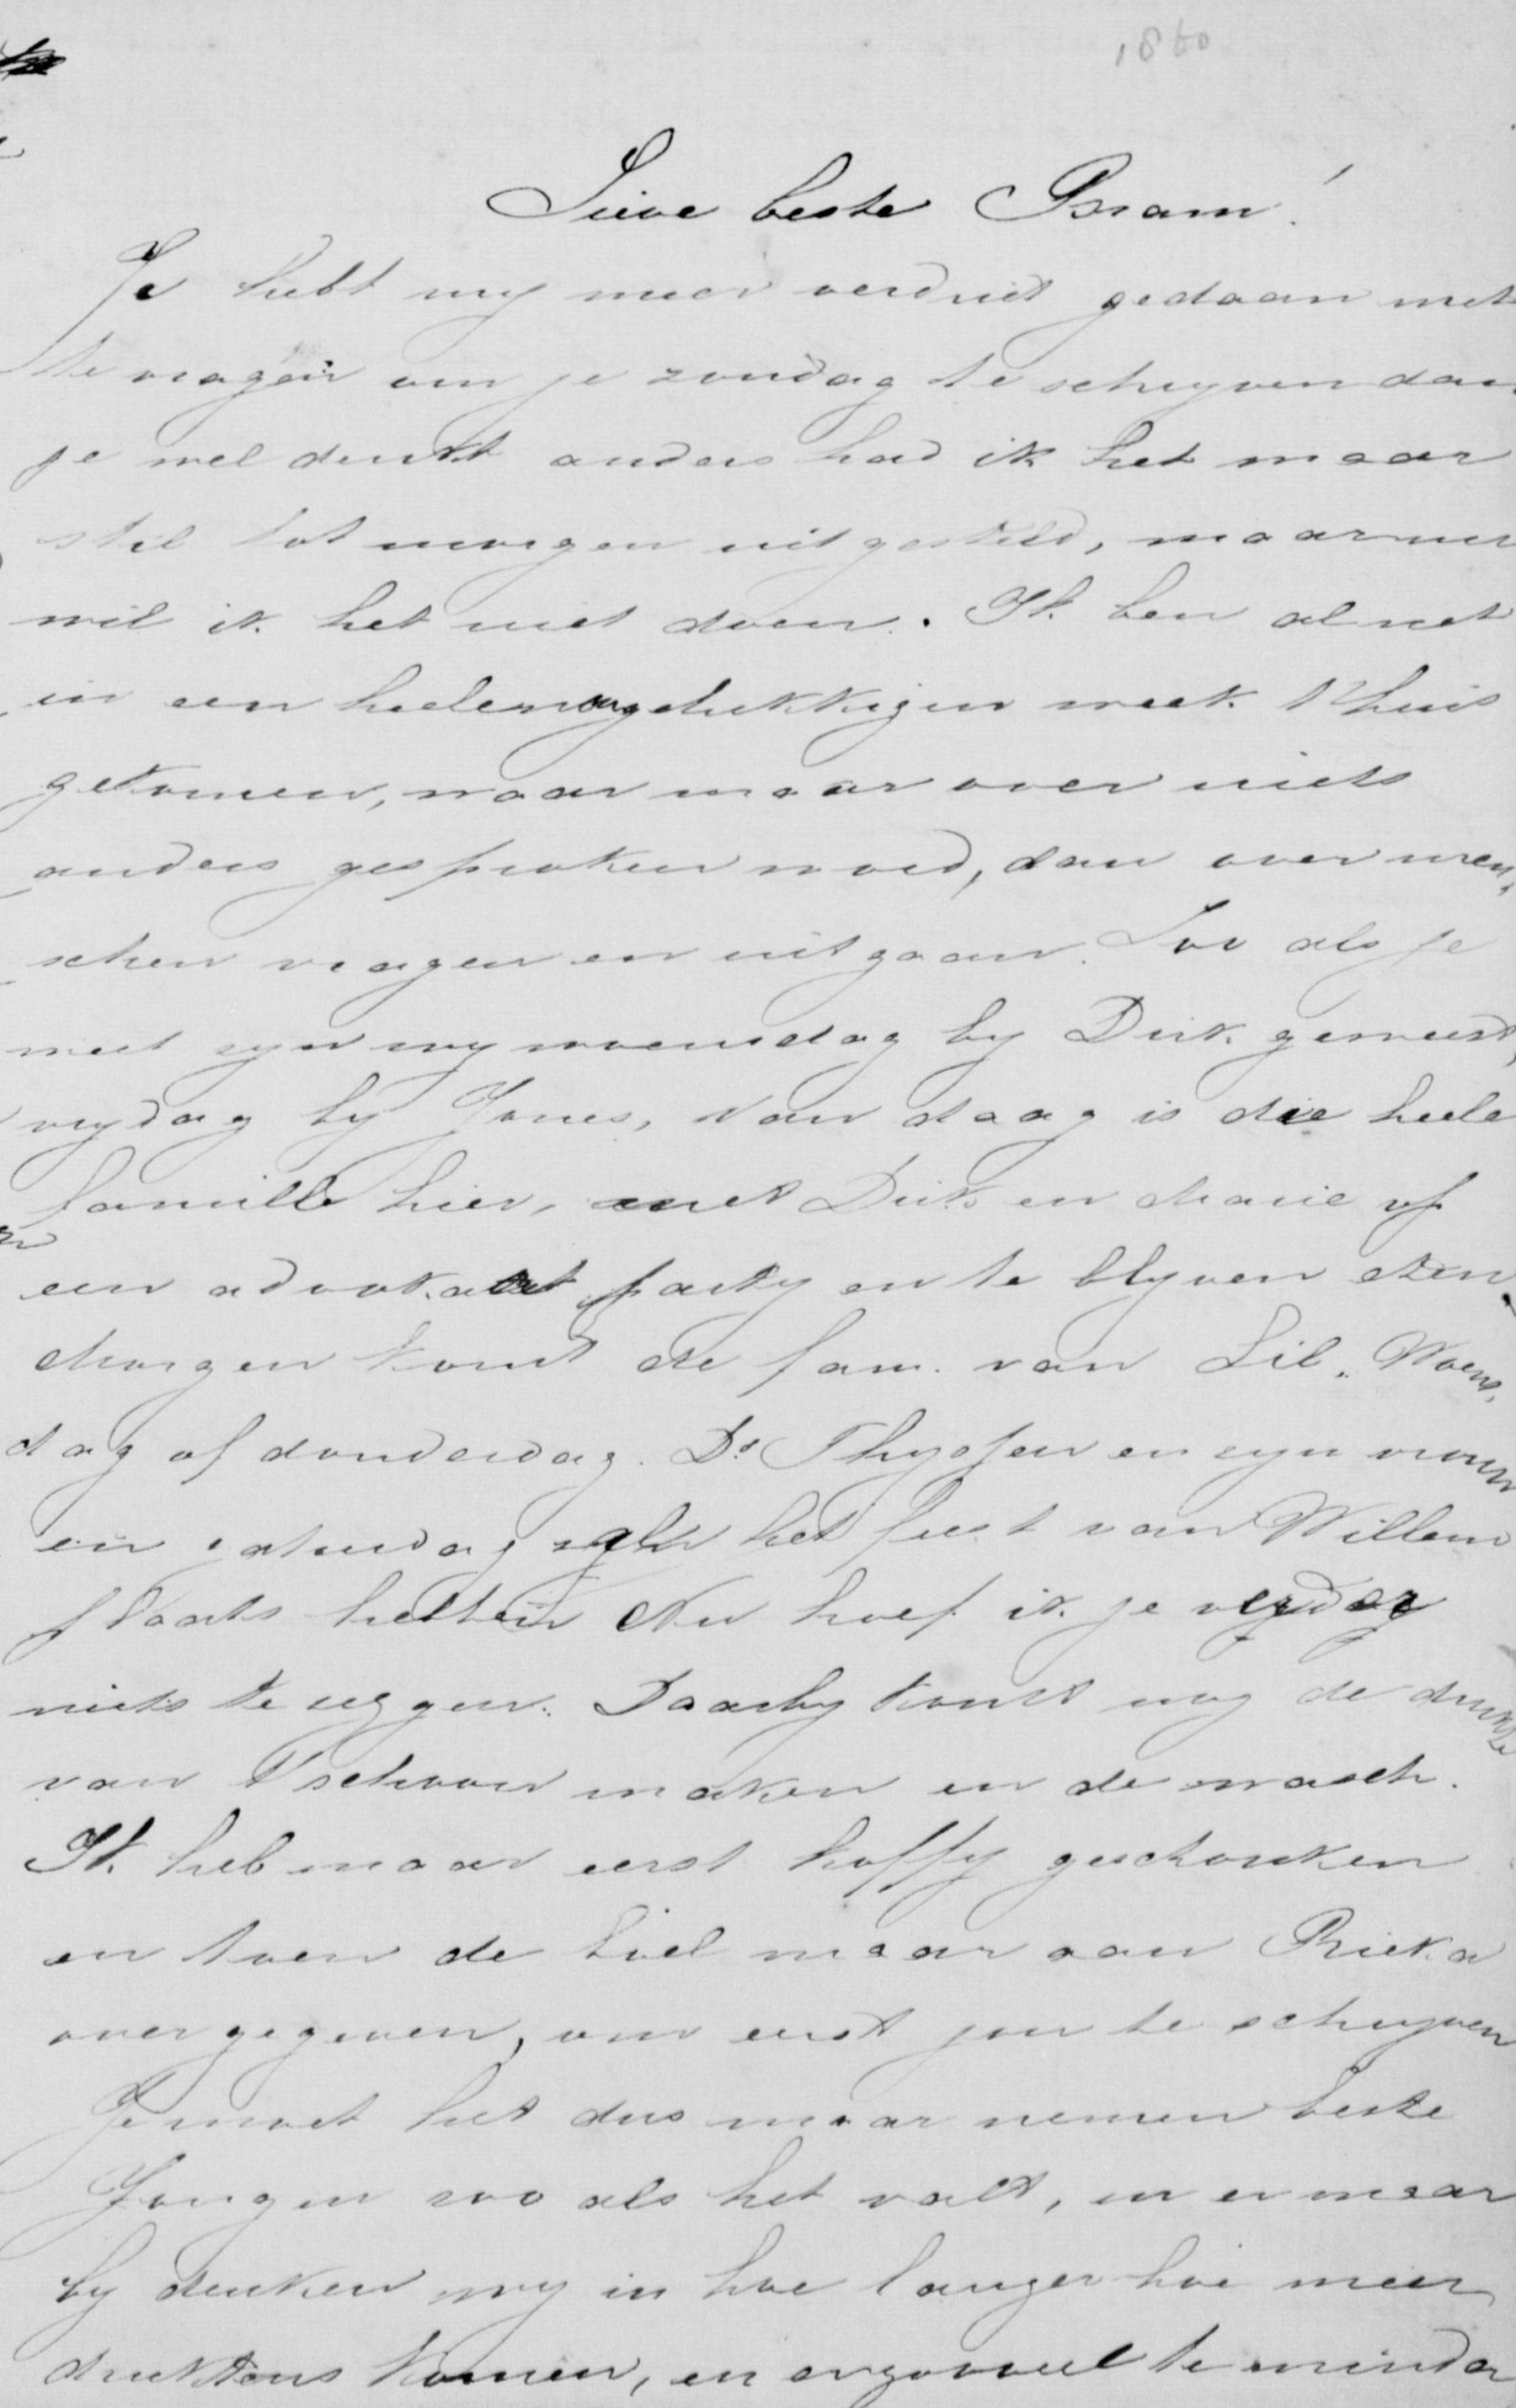 1860
Lieve beste Bram!
Je hebt my meer verdriet gedaan met
te vragen om je zondag te schryven dan
je wel denkt anders had ik het maar
stil tot morgen uitgesteld, maar nu
wil ik het niet doen. Ik ben al net
in een heelen ongelukkigen week t'huis
gekomen, waar maar over niets
anders gesproken word, dan over men„
schen vragen en uitgaan. Zoo als je
weet zyn wy woensdag by Dirk geweest,
vrydag by Jones, van daag is die heele
famille hier, met Dirk en Marie op
een advokaat party en te blyven eten
Morgen komt de fam. van Lil. Woens„
dag of donderdag. Ds Thyssen en zyn vrouw
en zaturdag zal het feest van Willem
plaats hebben Nu hoef ik je verder
niets te zeggen. Daarby komt nog de drukte
van t'schoonmaken en de wasch.
Ik heb maar eerst koffy geschonken
en toen de boel maar aan Rieka
overgegeven, om eerst jou te schryven
Je moet het dus maar nemen beste
Jongen zoo als het valt, en er maar
by denken wy in hoe langer hoe meer
drukten komen, en er zooveel te minder